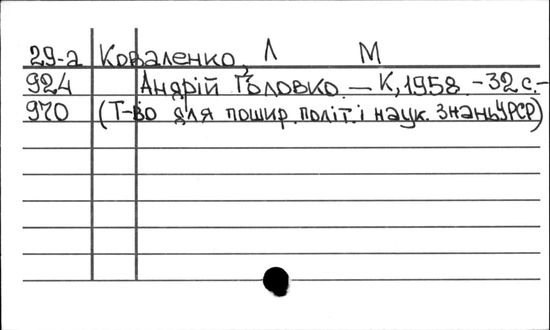 29-а Коваленко, Л М
924 Андрій Головко. – К., 1958. – 32 с. –
970 (Т-во для пошир. політ. і наук. знань УРСР)